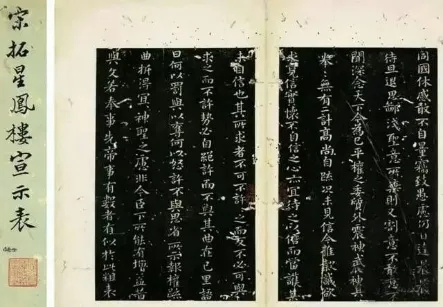 宋拓星鳳樓宣示表
同國休慼敢不自量竊致愚慮仍日達晨坐以
待旦退思鄙淺聖意所棄則又割意不敢獻
聞深念天下今為已平權之委質外震神武度其
拳拳無有二計高尚自疏況未見信今推款誠欲
求見信實懷不自信之心亦宜待之以信而當護其
未自信也其所求者不可不許許之而反不必可與
求之而不許勢必自絕許而不與其曲在己里語
曰何以罰與以奪何以怒許不與思省所示報權疏
曲折得宜宜神聖之慮非今臣下所能有增益昔
與文若奉事先帝事有數者有似於此粗表